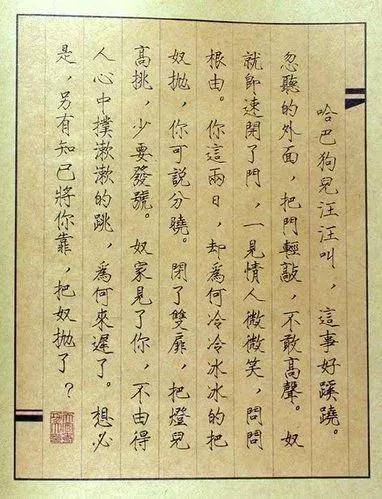 哈巴狗兒汪汪叫，這事好蹊蹺。
忽聽的外面，把門輕敲，不敢高聲。奴
就師速閉了門，一見情人微微笑，問問
根由。你這兩日，却爲何冷冷冰冰的把
奴拋，你可說分曉。閉了雙扉，把燈兒
高挑，少要發號。奴家見了你，不由得
人心中撲漱漱的跳，爲何來遲了。想必
是，另有知已將你靠，把奴拋了？